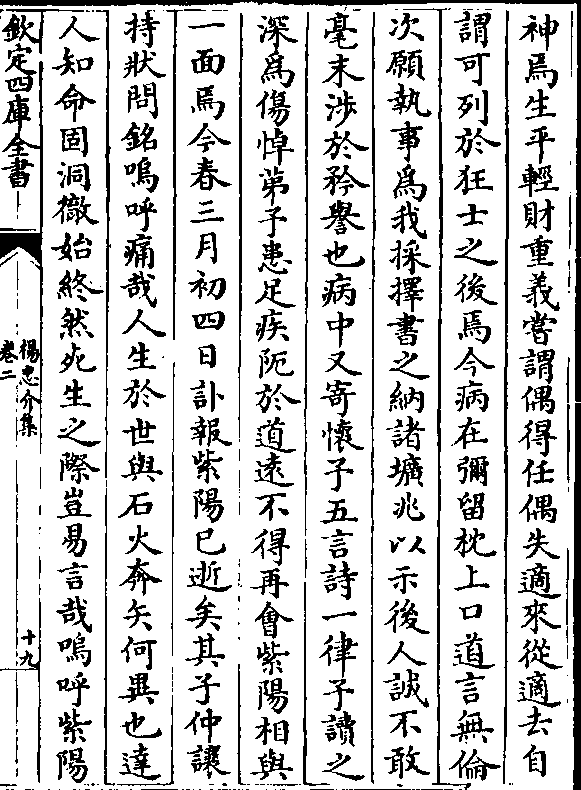 神焉生平輕財重義嘗謂偶得任偶失適來從適去自
謂可列於狂士之後焉今病在彌留枕上口道言無倫
次願執事為我採擇書之納諸壙兆以示後人誠不敢
毫末涉於矜譽也病中又寄懷予五言詩一律予讀之
深為傷悼第予患足疾阨於道遠不得再會紫陽相與
一面焉今春三月初四日訃報紫陽已逝矣其子仲讓
持狀問銘嗚呼痛哉人生於世與石火奔矢何異也達
人知命固洞徹始終然死生之際豈易言哉嗚呼紫陽
欽定四庫全書
楊忠介集
卷二
十九